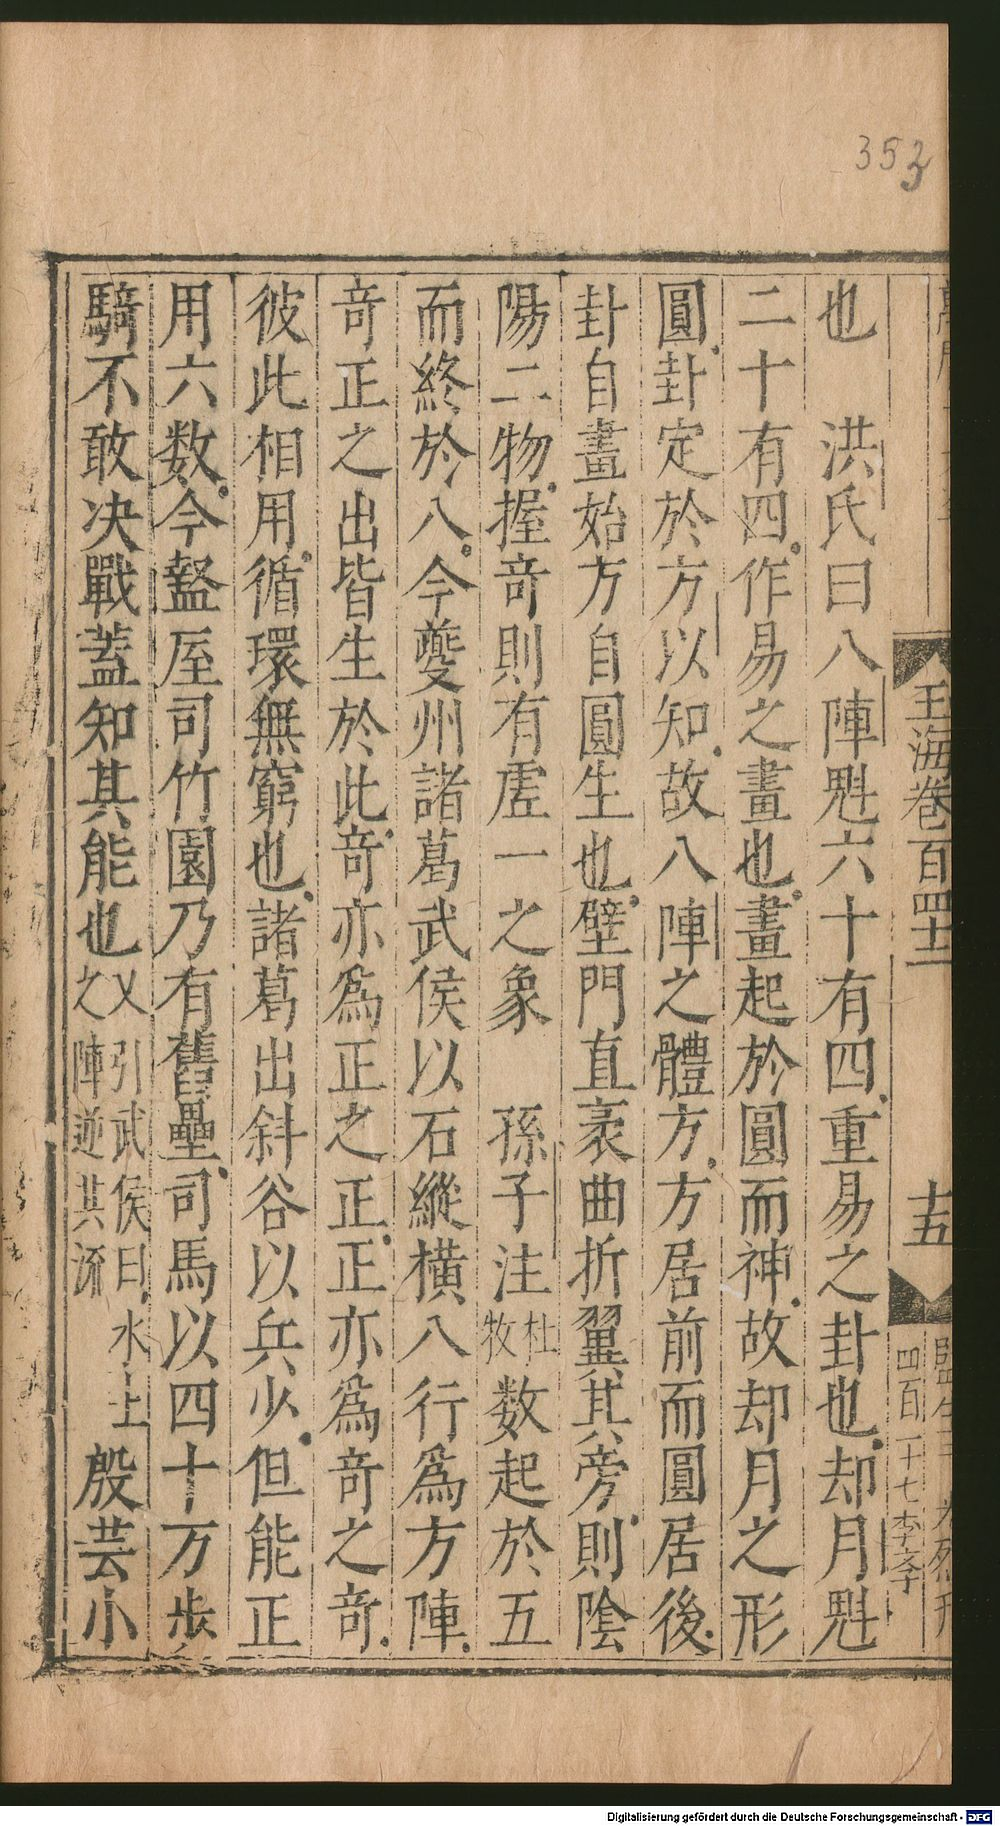 353
玉海卷百四十二
十五
四百二十七李孝
也　洪氏曰八陣魁六十有四重易之卦也却月魁
二十有四作易之畫也畫起於圓而神故却月之形
圓卦定於方以知故八陣之體方方居前而圓居後
卦自畫始方自圓生也壁門直袤曲折翼其旁則陰
陽二物握竒則有虗一之象　孫子注杜牧数起於五
而終於八今夔州諸葛武侯以石縱橫八行爲方陣
竒正之出皆生於此竒亦爲正之正正亦爲竒之竒
彼此相用循環無窮也諸葛出斜谷以兵少但能正
用六数今盩厔司竹園乃有舊壘司馬以四十万步
騎不敢决戰蓋知其能也又引武侯曰水上之陣逆其流殷芸小
Digitalisierung gefördert durch die Deutsche Forschungsgemeinschaft - DFG